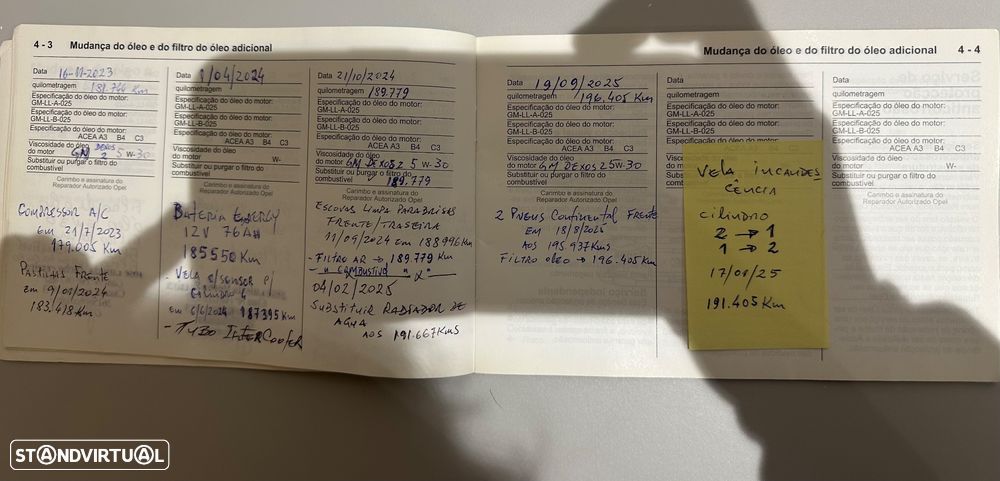 4 - 3 Mudança do óleo e do filtro do óleo adicional
Data 16-11-2023
quilometragem Km
Especificação do óleo do motor:
GM-LL-A-025
Especificação do óleo do motor:
GM-LL-B-025
Especificação do óleo do motor:
ACEA A3 B4 C3
Viscosidade do óleo DEXOS
do motor GM 2 5 W- 30
Substituir ou purgar o filtro do
combustível
Carimbo e assinatura do
Reparador Autorizado Opel
COMPRESSOR A/C
em 21/7/2023
179.005 Km
PASTILHAS FRENTE
em 9/01/2024
183.418 Km
Data /04/2024
quilometragem
Especificação do óleo do motor:
GM-LL-A-025
Especificação do óleo do motor:
GM-LL-B-025
Especificação do óleo do motor:
ACEA A3 B4 C3
Viscosidade do óleo
do motor W-
Substituir ou purgar o filtro do
combustível
Carimbo e assinatura do
Reparador Autorizado Opel
BATERIA ENERGY
12V 76AH
185550 Km
- VELA c/SENSOR P/
Cilindro 4
em 6/6/2024 187395 Km
- TUBO InterCooler
Data 21/10/2024
quilometragem 189.779
Especificação do óleo do motor:
GM-LL-A-025
Especificação do óleo do motor:
GM-LL-B-025
Especificação do óleo do motor:
ACEA A3 B4 C3
Viscosidade do óleo
do motor GM DEXOS 2 5 W- 30
Substituir ou purgar o filtro do
combustível 189.779
Carimbo e assinatura do
Reparador Autorizado Opel
ESCOVAS LIMPA PARABRISAS
FRENTE/TRASEIRA
11/09/2024 em 188996 Km
- FILTRO AR → 189.779 KM
- " COMBUSTIVO " "
04/02/2025
Substituir RADIADOR DE
AGUA
AOS 191.667 KMS
Mudança do óleo e do filtro do óleo adicional 4 - 4
Data 19/09/2025
quilometragem 196.405 Km
Especificação do óleo do motor:
GM-LL-A-025
Especificação do óleo do motor:
GM-LL-B-025
Especificação do óleo do motor:
ACEA A3 B4 C3
Viscosidade do óleo
do motor GM DEXOS 2 5W-30
Substituir ou purgar o filtro do
combustível
Carimbo e assinatura do
Reparador Autorizado Opel
2 PNEUS Continental FRENTE
EM 18/8/2025
AOS 195 937 Kms
FILTRO OLEO → 196.405 Km
Data
quilometragem
Especificação do óleo do motor:
GM-LL-A-025
Especificação do óleo do motor:
GM-LL-B-025
VELA INCANDES
CÊNCIA
cilindro
2 → 1
1 → 2
17/01/25
191.405 Km
Data
quilometragem
Especificação do óleo do motor:
GM-LL-A-025
Especificação do óleo do motor:
GM-LL-B-025
Especificação do óleo do motor:
ACEA A3 B4 C3
Viscosidade do óleo
do motor W-
Substituir ou purgar o filtro do
combustível
Carimbo e assinatura do
Reparador Autorizado Opel
STANDVIRTUAL